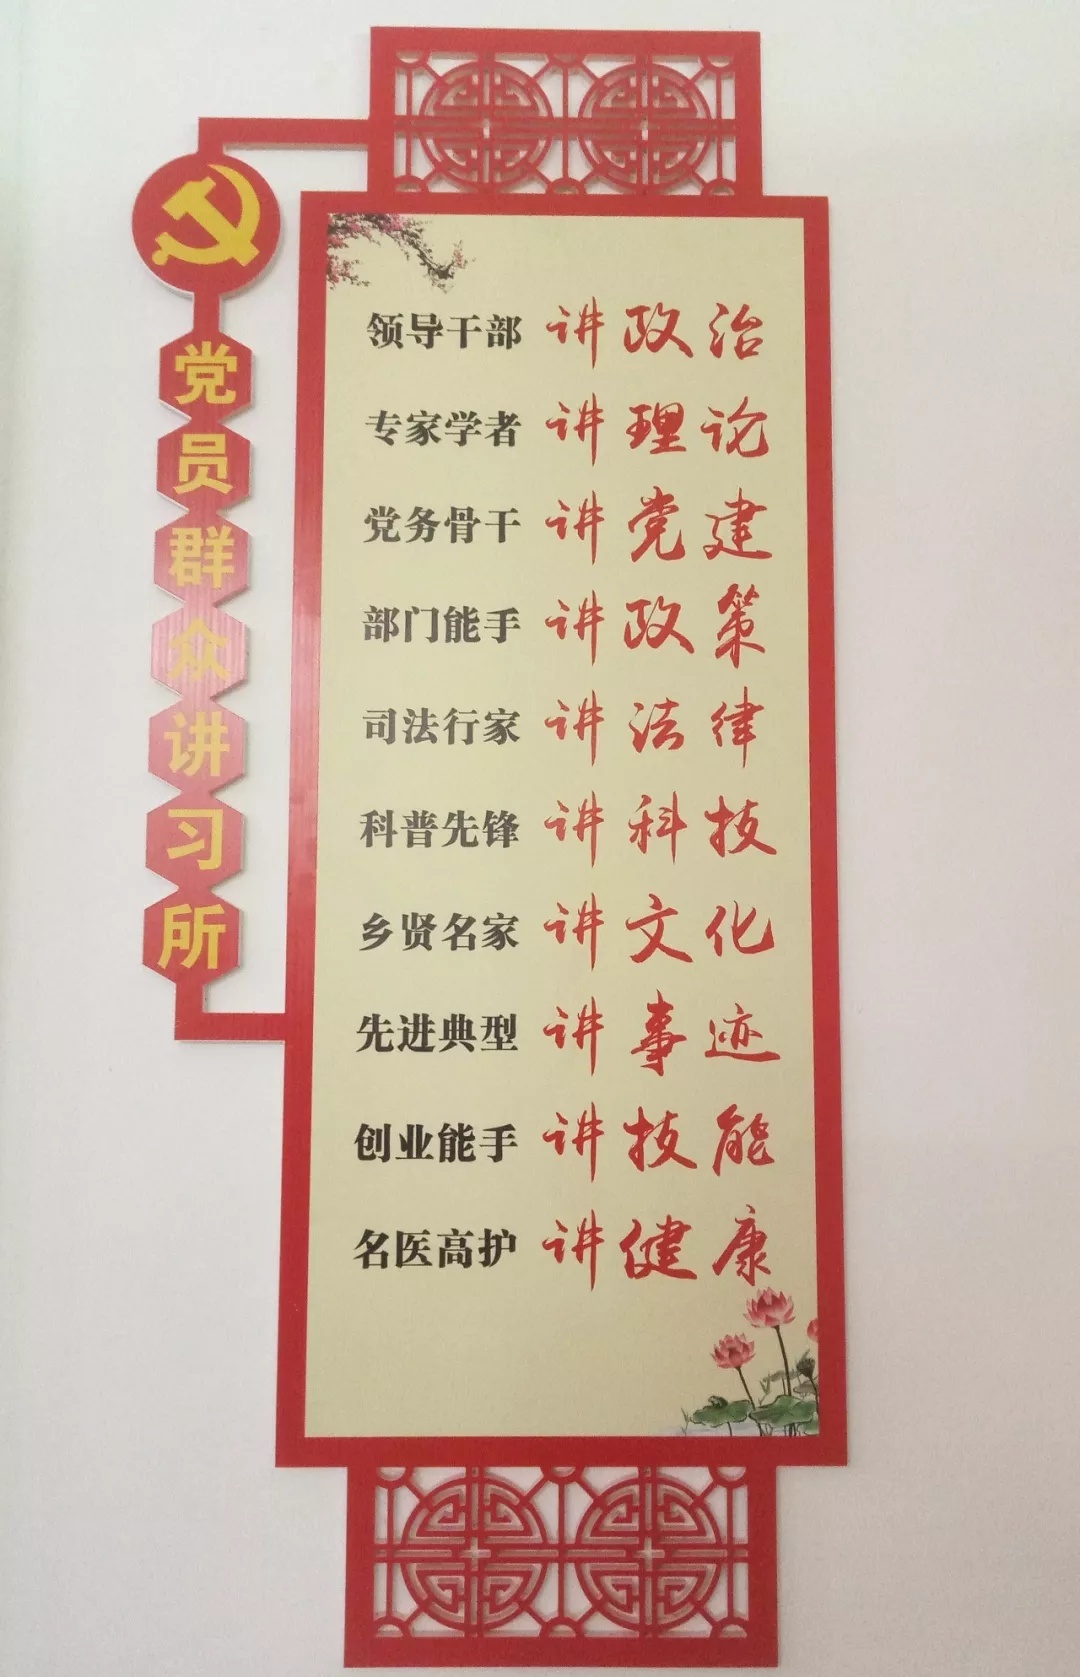 党员群众讲习所
领导干部 讲政治
专家学者 讲理论
党务骨干 讲党建
部门能手 讲政策
司法行家 讲法律
科普先锋 讲科技
乡贤名家 讲文化
先进典型 讲事迹
创业能手 讲技能
名医高护 讲健康